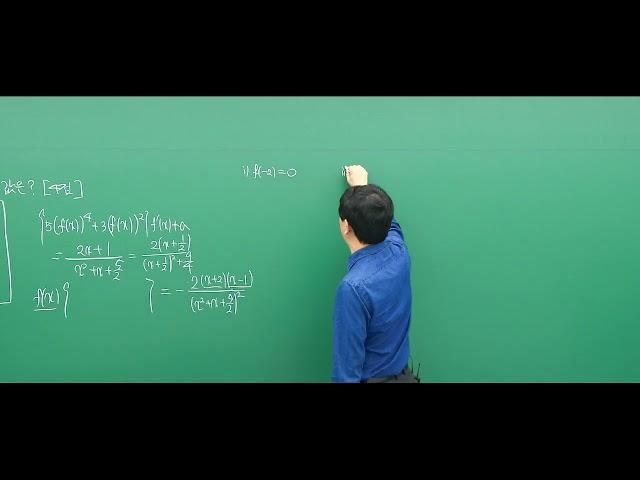 값은? [4점]
{5(f(x))⁴+3(f(x))²}f'(x)+a
= (2x+1)/(x²+x+5/2) = 2(x+1/2)/((x+1/2)²+9/4)
f'(x){ } = -2(x+2)(x-1)/(x²+x+5/2)²
i) f(-2)=0